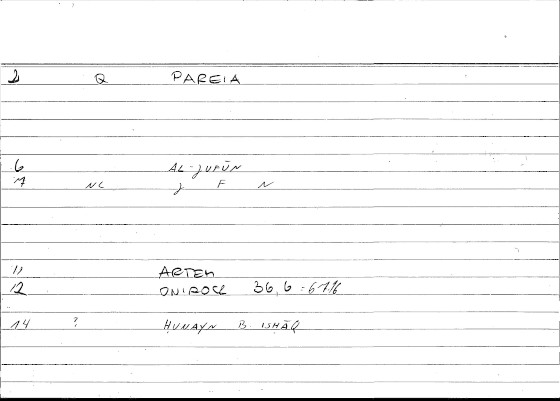 2 Q PAREIA
6 AL-JUFŪN
7 NC J F N
11 ARTEM
12 ONIROCR 36,6 = 67.16
14 ? ḤUNAYN B. ISHĀQ